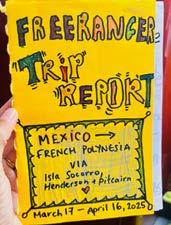 FREERANGER
TRIP
REPORT
MEXICO →
FRENCH POLYNESIA
VIA
Isla Socorro,
Henderson + Pitcairn
March 17 - April 16, 2025